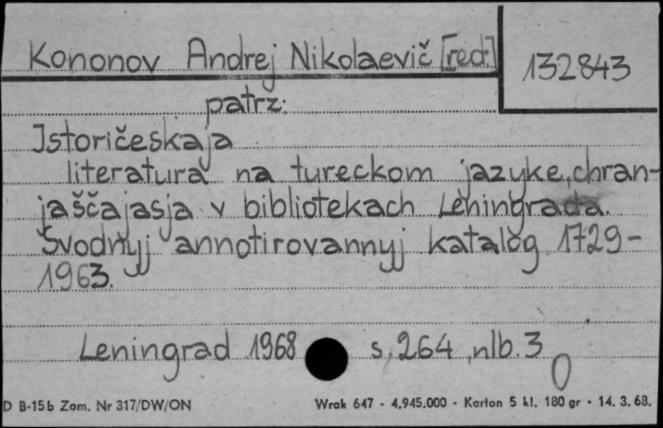 Kononov Andrej Nikolaevič [red.] 132843
patrz:
Istoričeskaja
literatura na tureckom jazyke, chran-
jaščajasja v bibliotekach Leningrada.
Svodnyj annotirovannyj katalog 1729-
1963.
Leningrad 1968 s. 264, nlb. 3
D B-15b Zam. Nr 317/DW/ON Wrak 647 - 4.945.000 - Karton 5 kl. 180 gr - 14. 3. 68.